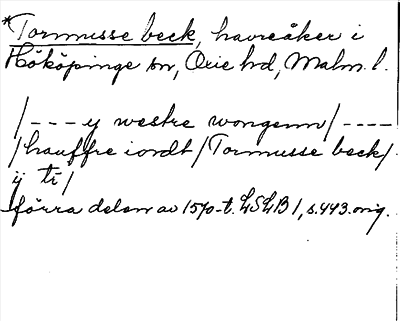 *Tormusse beck, havreåker i
Hököpinge sn, Oxie hd, Malm. l.
/--- y westre wongenn/----
/hauffre iordt/Tormusse beck/
ij tr/
förra delen av 1570-t. LSLB 1, s. 443. orig.